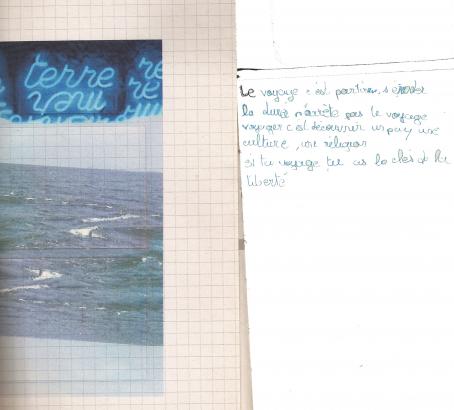 terre
Le voyage c'est partir, s'évader
la durée n'arrête pas le voyage
voyager c est découvrir un pay, une
culture, une réligion
si tu voyage tu as la clés de la
liberté